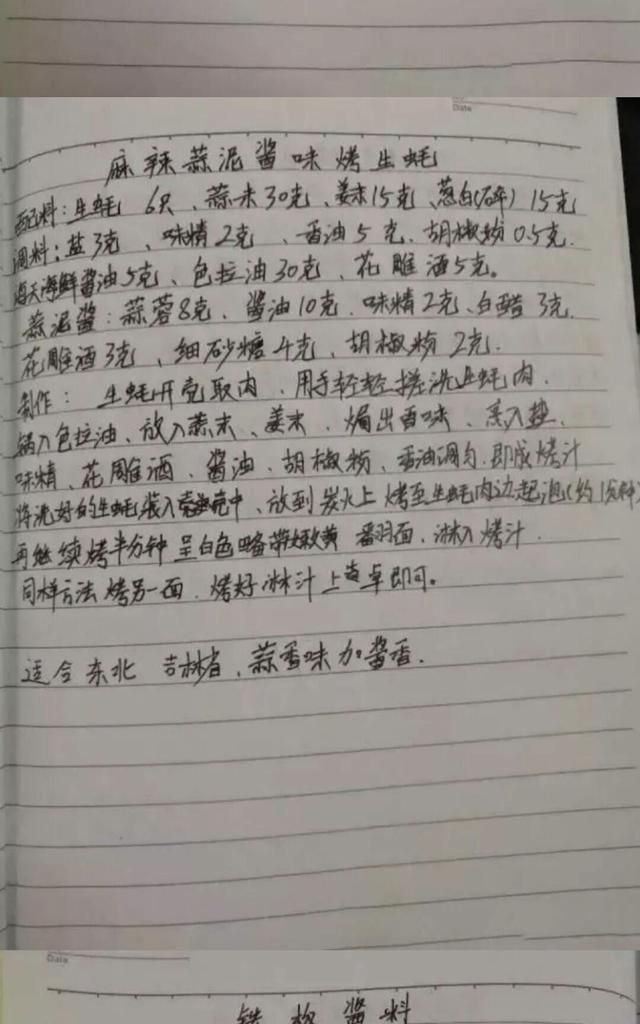 Date
麻辣蒜泥酱味烤生蚝
配料:生蚝 6只、蒜末30克、姜末15克、葱白(碎) 15克
调料:盐3克、味精2克、香油5克、胡椒粉0.5克.
海天海鲜酱油5克、色拉油30克、花雕酒5克。
蒜泥酱:蒜蓉8克、酱油10克.味精2克、白醋3克.
花雕酒3克、细砂糖4克,胡椒粉2克.
制作: 生蚝开壳取肉,用手轻轻搓洗生蚝肉.
锅入色拉油、放入蒜末、姜末、焗出香味、烹入盐.
味精、花雕酒、酱油、胡椒粉、香油调匀.即成烤汁
将洗好的生蚝装入壳中、放到炭火上烤至生蚝肉边起泡(约1分钟)
再继续烤半分钟呈白色略带嫩黄 翻面,淋入烤汁.
同样方法烤另一面.烤好淋汁上桌即可。
适合东北 吉林省,蒜香味加酱香.
Date
铁板酱料